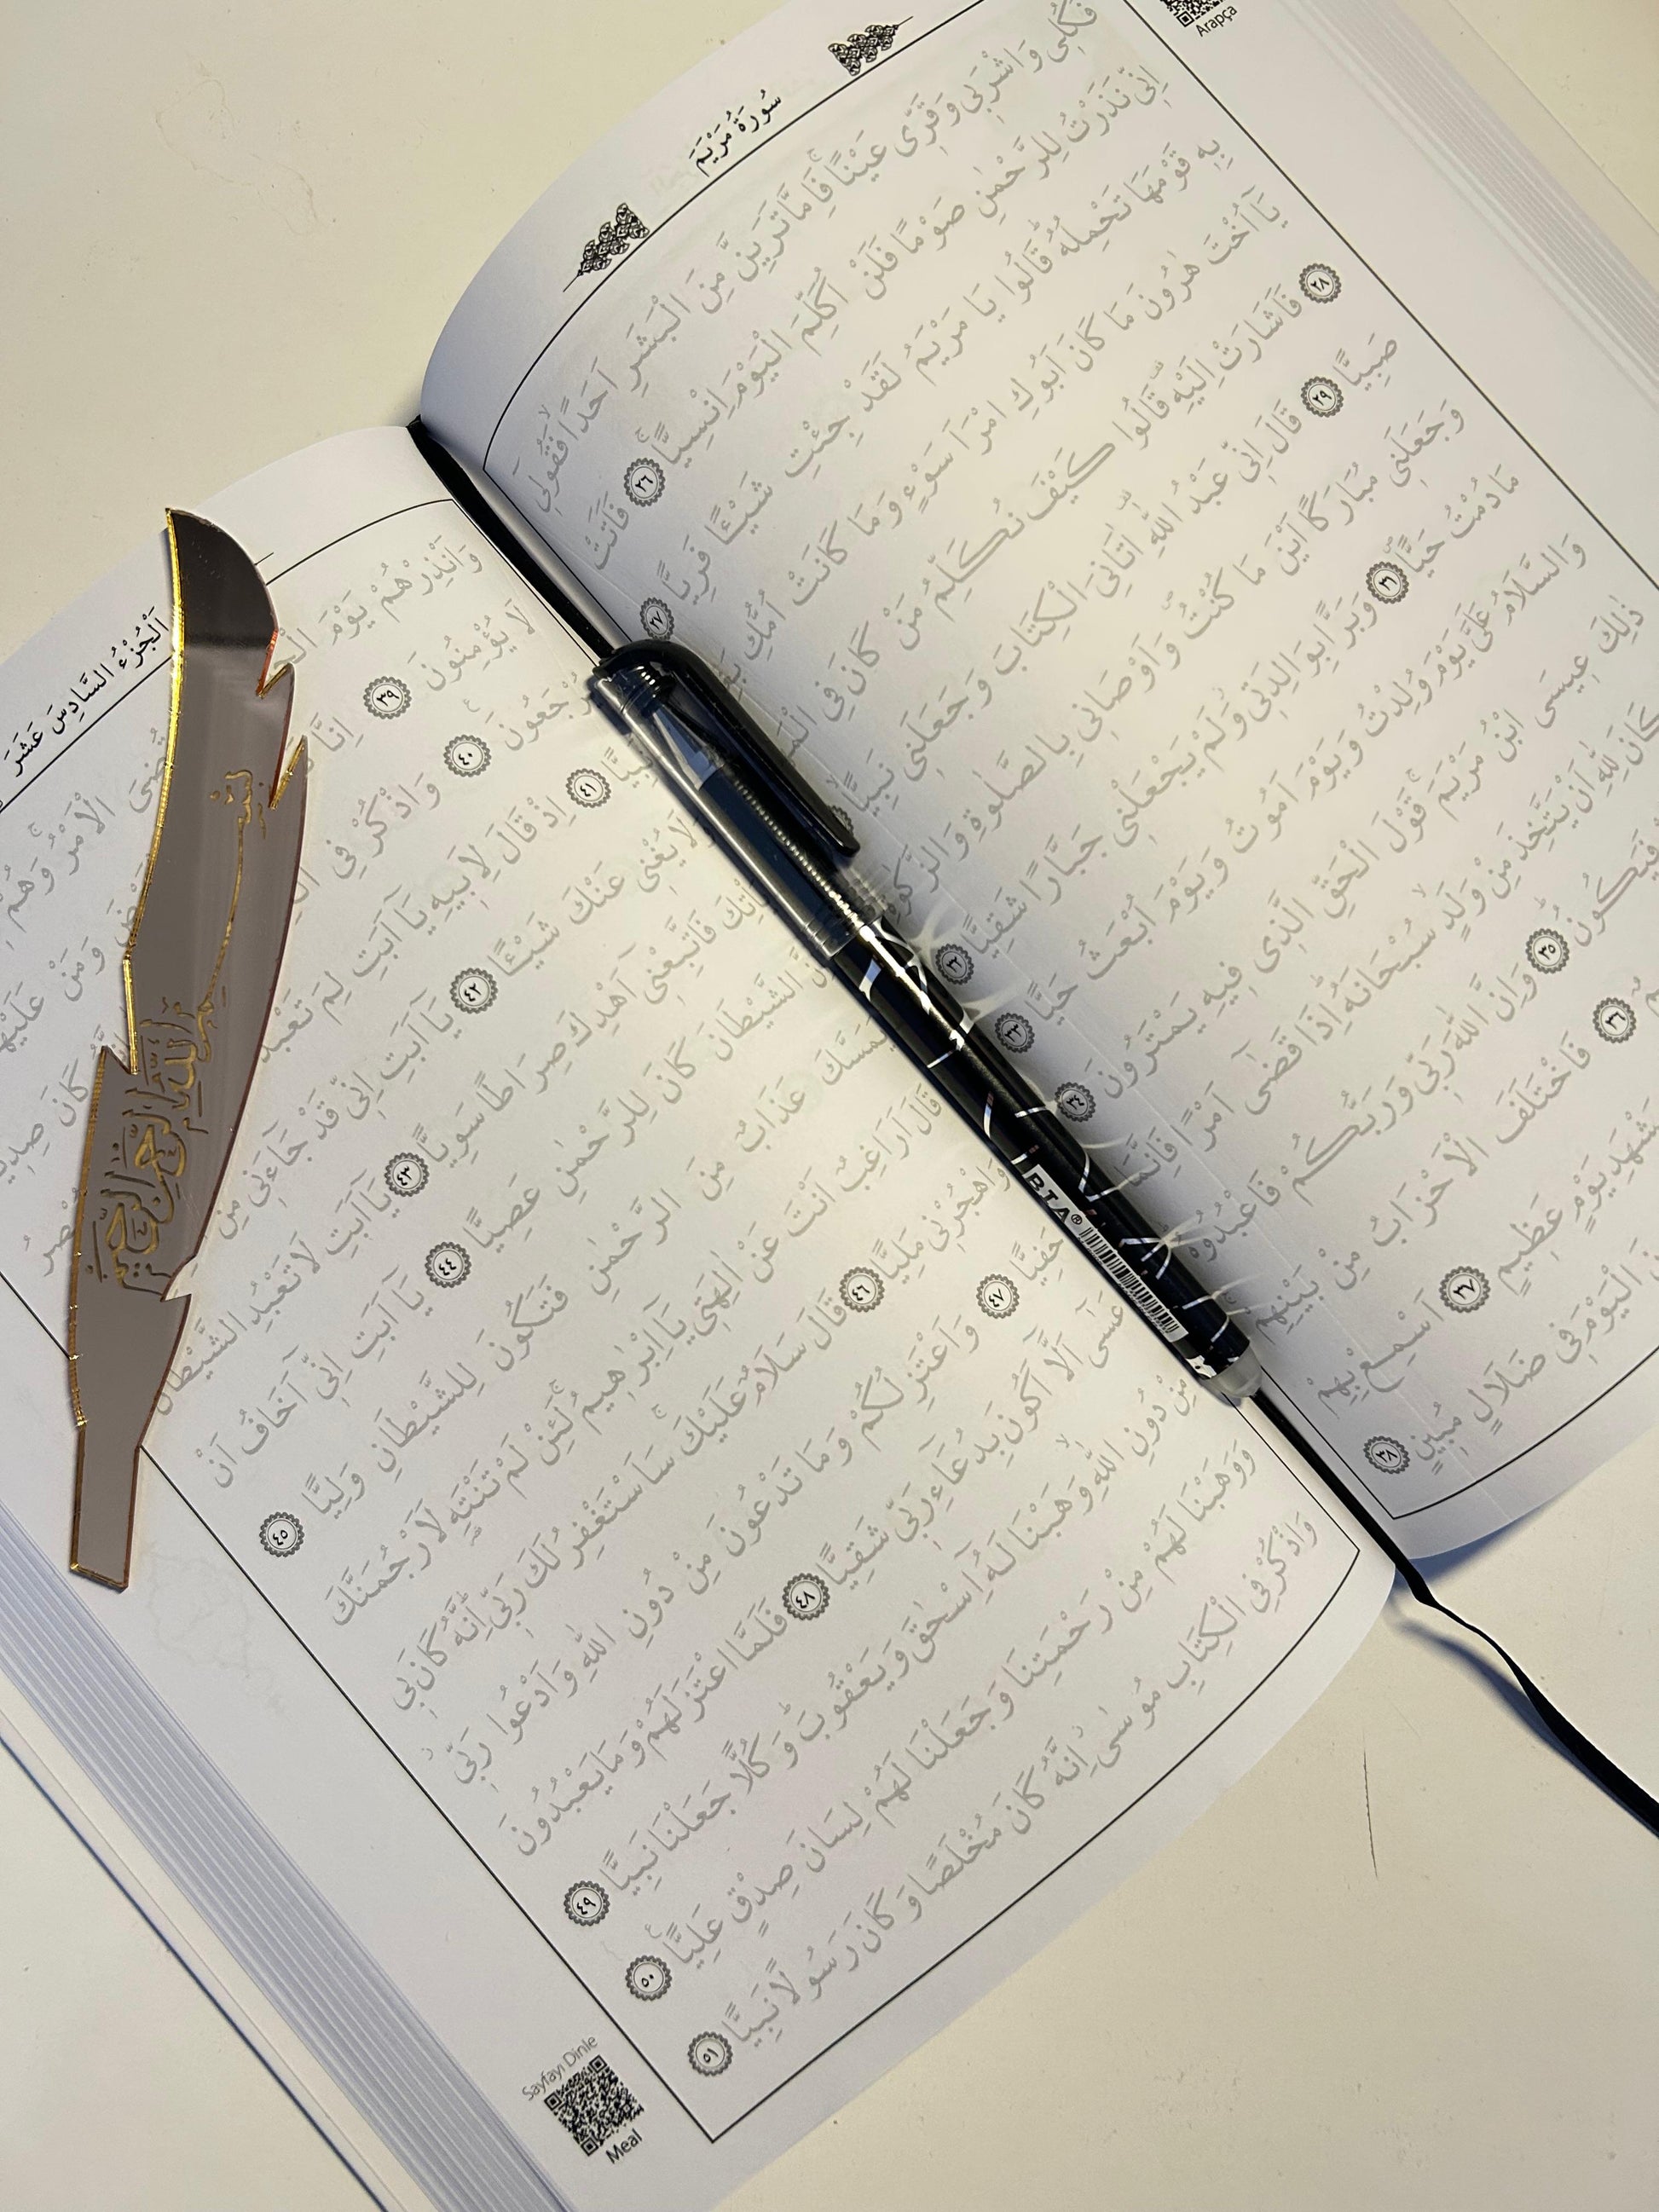 Arapça
سُورَةُ مَرْيَمَ
فَكُلِى وَاشْرَبِى وَقَرِّى عَيْنًاۚ فَاِمَّا تَرَيِنَّ مِنَ الْبَشَرِ اَحَدًاۙ فَقُولِٓى
اِنِّى نَذَرْتُ لِلرَّحْمٰنِ صَوْمًا فَلَنْ اُكَلِّمَ الْيَوْمَ اِنْسِيًّاۚ ٢٦ فَاَتَتْ
بِهٖ قَوْمَهَا تَحْمِلُهُۜ قَالُوا يَا مَرْيَمُ لَقَدْ جِئْتِ شَيْـًٔا فَرِيًّا ٢٧
يَٓا اُخْتَ هٰرُونَ مَا كَانَ اَبُوكِ امْرَاَ سَوْءٍ وَمَا كَانَتْ اُمُّكِ
٢٨ فَاَشَارَتْ اِلَيْهِ قَالُوا كَيْفَ نُكَلِّمُ مَنْ كَانَ فِى
صَبِيًّا ٢٩ قَالَ اِنِّى عَبْدُ اللّٰهِ اٰتَانِىَ الْكِتَابَ وَجَعَلَنِى نَبِيًّاۙ
وَجَعَلَنِى مُبَارَكًا اَيْنَ مَا كُنْتُ وَاَوْصَانِى بِالصَّلٰوةِ وَالزَّكٰوةِ
مَا دُمْتُ حَيًّاۖ ٣١ وَبَرًّا بِوَالِدَتِى وَلَمْ يَجْعَلْنِى جَبَّارًا شَقِيًّا ٣٢
وَالسَّلَامُ عَلَىَّ يَوْمَ وُلِدْتُ وَيَوْمَ اَمُوتُ وَيَوْمَ اُبْعَثُ حَيًّا ٣٣
ذٰلِكَ عِيسَى ابْنُ مَرْيَمَۚ قَوْلَ الْحَقِّ الَّذِى فِيهِ يَمْتَرُونَ ٣٤
كَانَ لِلّٰهِ اَنْ يَتَّخِذَ مِنْ وَلَدٍۙ سُبْحَانَهُۜ اِذَا قَضٰٓى اَمْرًا فَاِنَّمَا
فَيَكُونُۜ ٣٥ وَاِنَّ اللّٰهَ رَبِّى وَرَبُّكُمْ فَاعْبُدُوهُۜ
٣٦ فَاخْتَلَفَ الْاَحْزَابُ مِنْ بَيْنِهِمْۚ
مَشْهَدِ يَوْمٍ عَظِيمٍ ٣٧ اَسْمِعْ بِهِمْ
الْيَوْمَ فِى ضَلَالٍ مُبِينٍ ٣٨
اَلْجُزْءُ السَّادِسَ عَشَرَ
وَاَنْذِرْهُمْ يَوْمَ قُضِىَ الْاَمْرُۘ وَهُمْ
لَا يُؤْمِنُونَ ٣٩ اِنَّا وَمَنْ عَلَيْهَا
يُرْجَعُونَ۟ ٤٠ وَاذْكُرْ فِى كَانَ صِدِّيقًا
نَبِيًّا ٤١ اِذْ قَالَ لِاَبِيهِ يَٓا اَبَتِ لِمَ تَعْبُدُ
وَلَا يُغْنِى عَنْكَ شَيْـًٔا ٤٢ يَٓا اَبَتِ اِنِّى قَدْ جَٓاءَنِى مِنَ
يَاْتِكَ فَاتَّبِعْنِٓى اَهْدِكَ صِرَاطًا سَوِيًّا ٤٣ يَٓا اَبَتِ لَا تَعْبُدِ الشَّيْطَانَۜ
اِنَّ الشَّيْطَانَ كَانَ لِلرَّحْمٰنِ عَصِيًّا ٤٤ يَٓا اَبَتِ اِنِّٓى اَخَافُ اَنْ
يَمَسَّكَ عَذَابٌ مِنَ الرَّحْمٰنِ فَتَكُونَ لِلشَّيْطَانِ وَلِيًّا ٤٥
قَالَ اَرَاغِبٌ اَنْتَ عَنْ اٰلِهَتِى يَٓا اِبْرٰهِيمُۚ لَئِنْ لَمْ تَنْتَهِ لَاَرْجُمَنَّكَ
وَاهْجُرْنِى مَلِيًّا ٤٦ قَالَ سَلَامٌ عَلَيْكَۚ سَاَسْتَغْفِرُ لَكَ رَبِّىۜ اِنَّهُ كَانَ بِى
حَفِيًّا ٤٧ وَاَعْتَزِلُكُمْ وَمَا تَدْعُونَ مِنْ دُونِ اللّٰهِ وَاَدْعُوا رَبِّىۘ
عَسٰٓى اَلَّٓا اَكُونَ بِدُعَٓاءِ رَبِّى شَقِيًّا ٤٨ فَلَمَّا اعْتَزَلَهُمْ وَمَا يَعْبُدُونَ
مِنْ دُونِ اللّٰهِۙ وَهَبْنَا لَهُٓ اِسْحٰقَ وَيَعْقُوبَۜ وَكُلًّا جَعَلْنَا نَبِيًّا ٤٩
وَوَهَبْنَا لَهُمْ مِنْ رَحْمَتِنَا وَجَعَلْنَا لَهُمْ لِسَانَ صِدْقٍ عَلِيًّا۟ ٥٠
وَاذْكُرْ فِى الْكِتَابِ مُوسٰىۘ اِنَّهُ كَانَ مُخْلَصًا وَكَانَ رَسُولًا نَبِيًّا ٥١
Sayfayı Dinle
Meal
بِسْمِ اللّٰهِ الرَّحْمٰنِ الرَّحِيمِ
BTA®